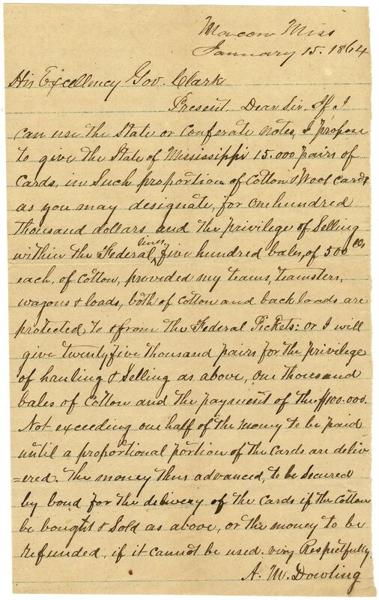 Macon Miss
January 15. 1864
His Excellency Gov. Clark
Present. Dear Sir. If I
can use the State or Conferate notes, I propose
to give the State of Mississippi 15.000 pairs of
Cards, in Such proportion of Cotton & Wool Cards
as you may designate, for One hundred
thousand dollars and the privilege of Selling
within the Federal lines, five hundred bales, of 500 lbs
each, of Cotton, provided my teams, teamsters,
wagons & loads, both of Cotton and back loads are
protected to & from the Federal Pickets: or I will
give twenty five thousand pairs for the privilege
of hauling & Selling as above, One thousand
bales of Cotton and the payment of the $100.000.
Not exceeding one half of the money to be paid
until a proportional portion of the Cards are deliv-
ered. The money thus advanced, to be secured
by bond for the delivery of the Cards if the Cotton
be bought & Sold as above, or the money to be
Refunded, if it cannot be used. Very Respectfully
A. M. Dowling